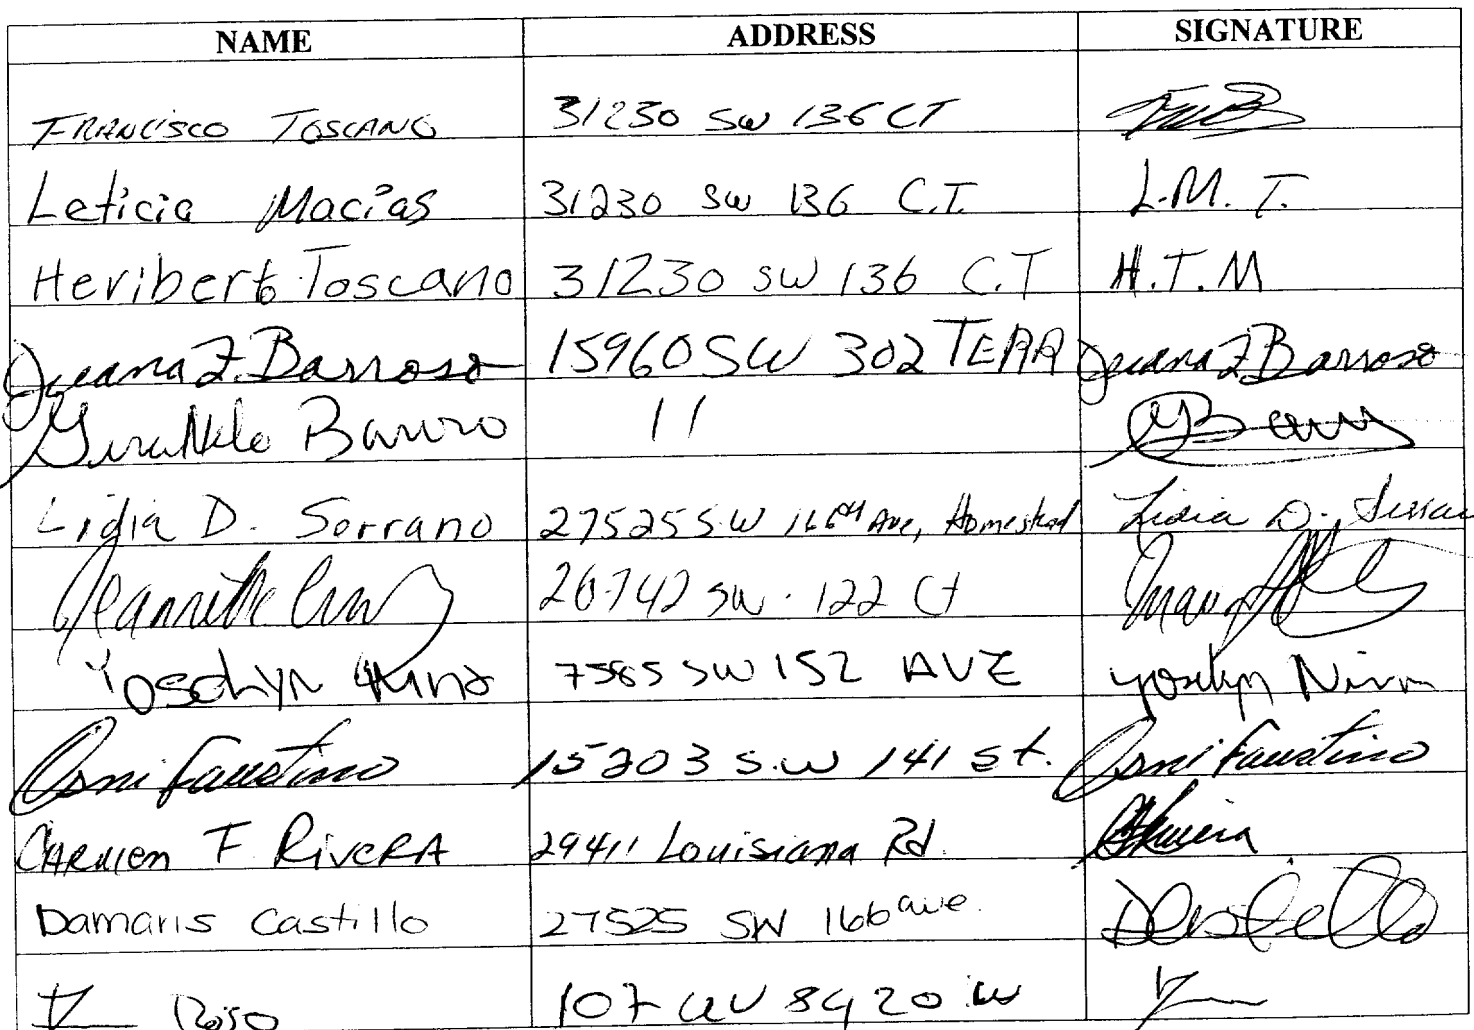 NAME ADDRESS SIGNATURE
FRANCISCO TOSCANO 31230 SW 136 CT
Leticia Macias 31230 SW 136 C.T. L.M. T.
Heriberto Toscano 31230 SW 136 C.T H.T.M
Juana Z. Barroso 15960 SW 302 TERR Juana Z Barroso
11
Lidia D. Serrano 27525 S.W 166th Ave, Homestead Lidia D.
Jeannette Cruz SW. 122 Ct
7585 SW 152 AVE
Osni Faustino 15203 S.W 141 st. Osni Faustino
CARMEN F RIVERA 29411 Louisiana Rd.
Damaris Castillo 27525 SW 166 ave. DCastillo